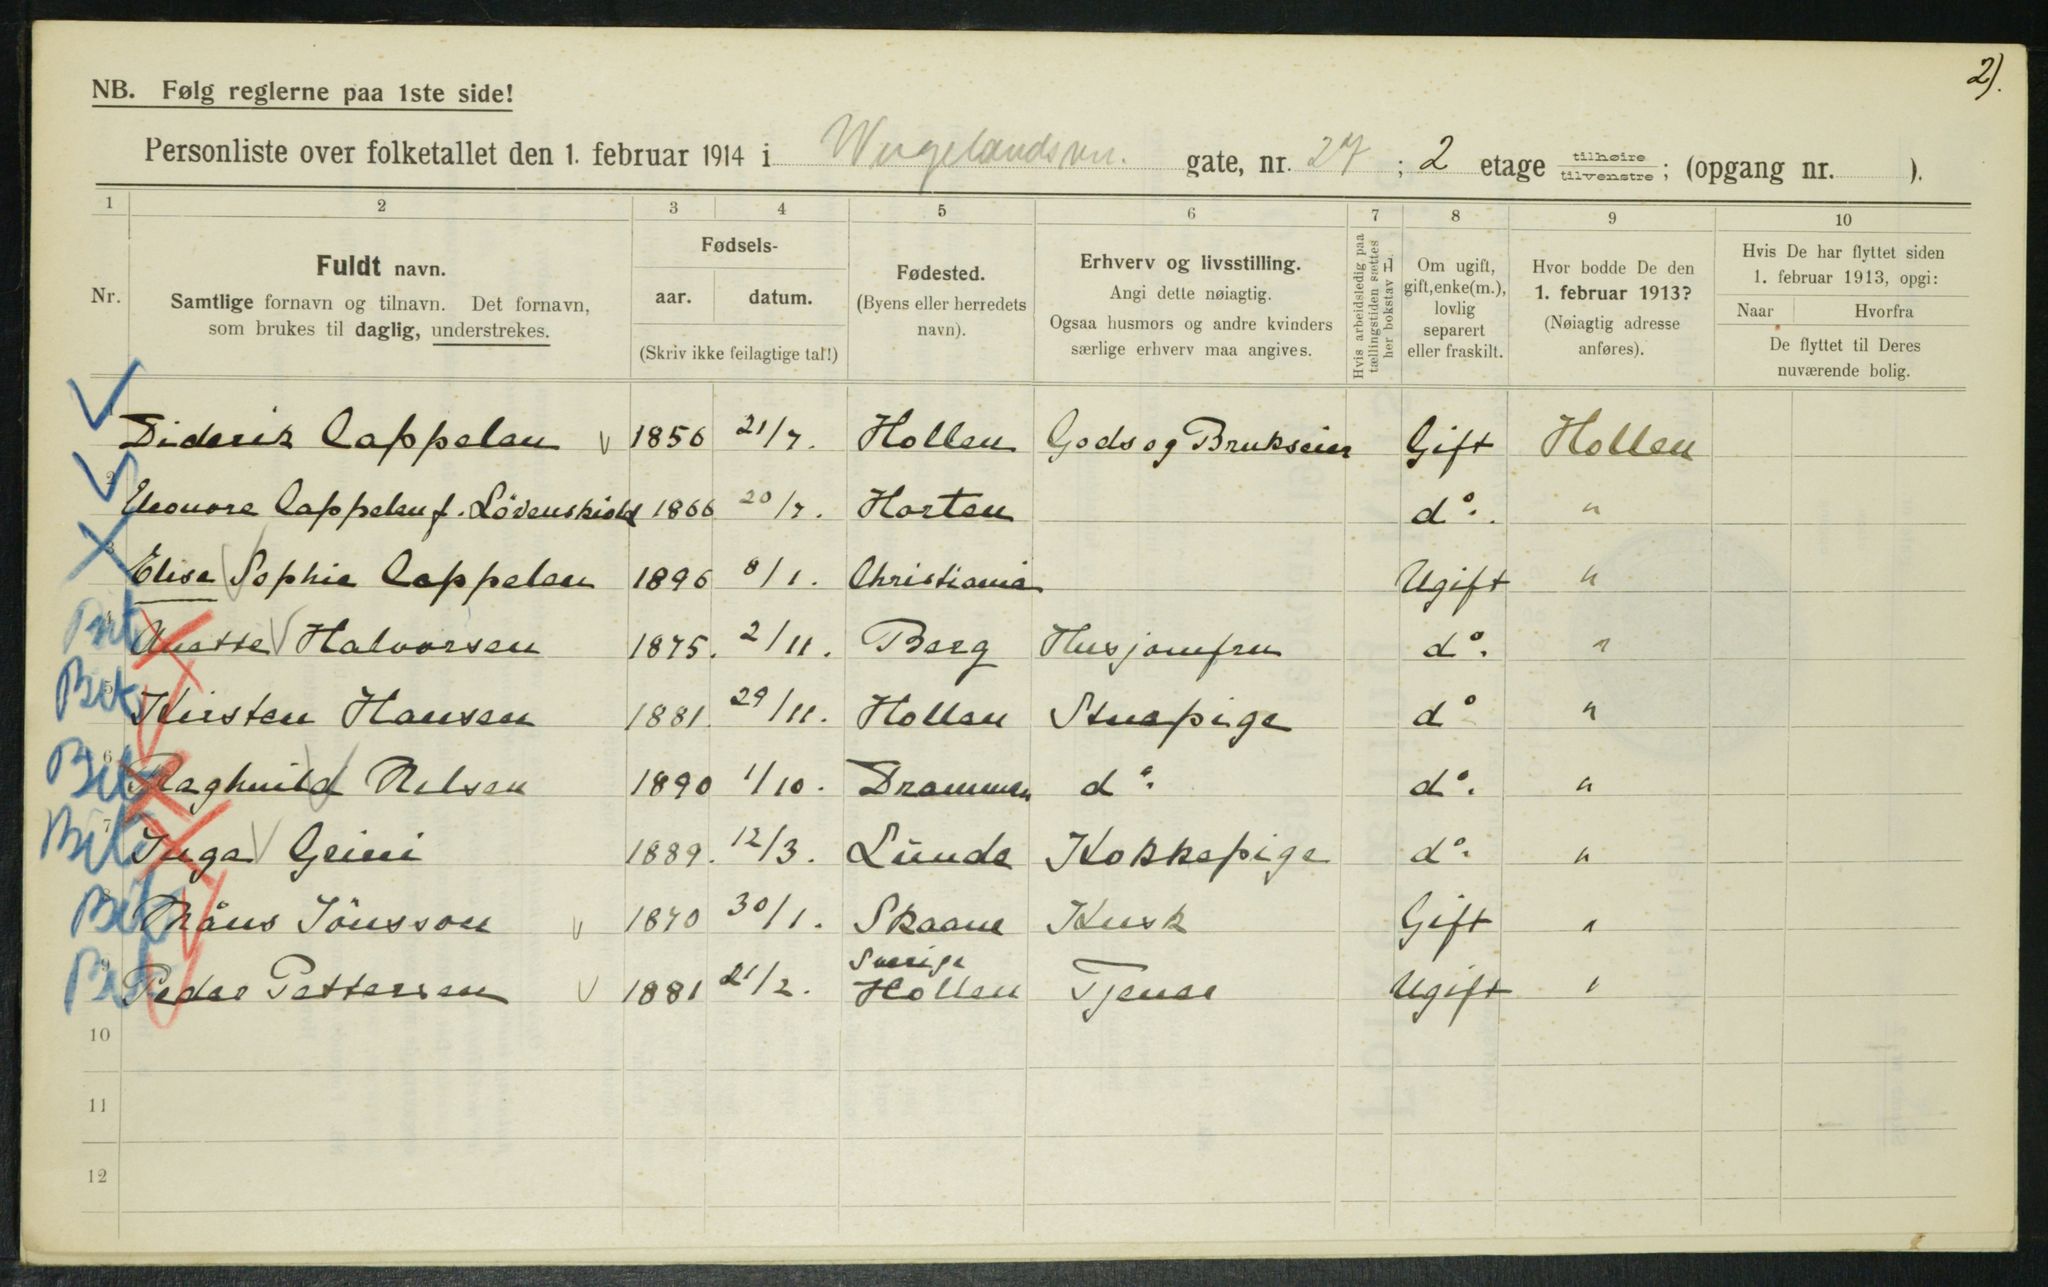 2).
NB. Følg reglerne paa 1ste side!
Personliste over folketallet den 1. februar 1914 i Wergelandsvn. gate, nr. 27 ; 2 etage tilhøire tilvenstre ; (opgang nr. ).
1 2 3 4 5 6 7 8 9 10
Nr.
Fuldt navn.
Samtlige fornavn og tilnavn. Det fornavn,
som brukes til daglig, understrekes.
Fødsels-
aar. datum.
(Skriv ikke feilagtige tal!)
Fødested.
(Byens eller herredets
navn).
Erhverv og livsstilling.
Angi dette nøiagtig.
Ogsaa husmors og andre kvinders
særlige erhverv maa angives.
Hvis arbeidsledig paa
tællingstiden sættes
her bokstav L
Om ugift,
gift, enke(m.),
lovlig
separert
eller fraskilt.
Hvor bodde De den
1. februar 1913?
(Nøiagtig adresse
anføres).
Hvis De har flyttet siden
1. februar 1913, opgi:
Naar Hvorfra
De flyttet til Deres
nuværende bolig.
1 Diderik Cappelen 1856 21/7. Hollen Gods og Brukseier Gift Hollen
2 Eleonore Cappelen f. Lövenskiold 1866 20/7. Horten do. "
3 Elise Sophie Cappelen 1896 8/1. Christiania Ugift "
4 Anette Halvorsen 1875. 2/11. Berg Husjomfru do. "
5 Kirsten Hansen 1881. 29/11. Hollen Stuepige do "
6 Raghnild Nelsen 1890 1/10. Drammen do. do. "
7 Inga Geini 1889. 12/3. Lunde Kokkepige do. "
8 Måns Jönsson 1870 30/1. Skaane Kusk Gift "
Sverige
9 Peder Pettersen 1881 21/2. Hollen Tjener Ugift "
10
11
12